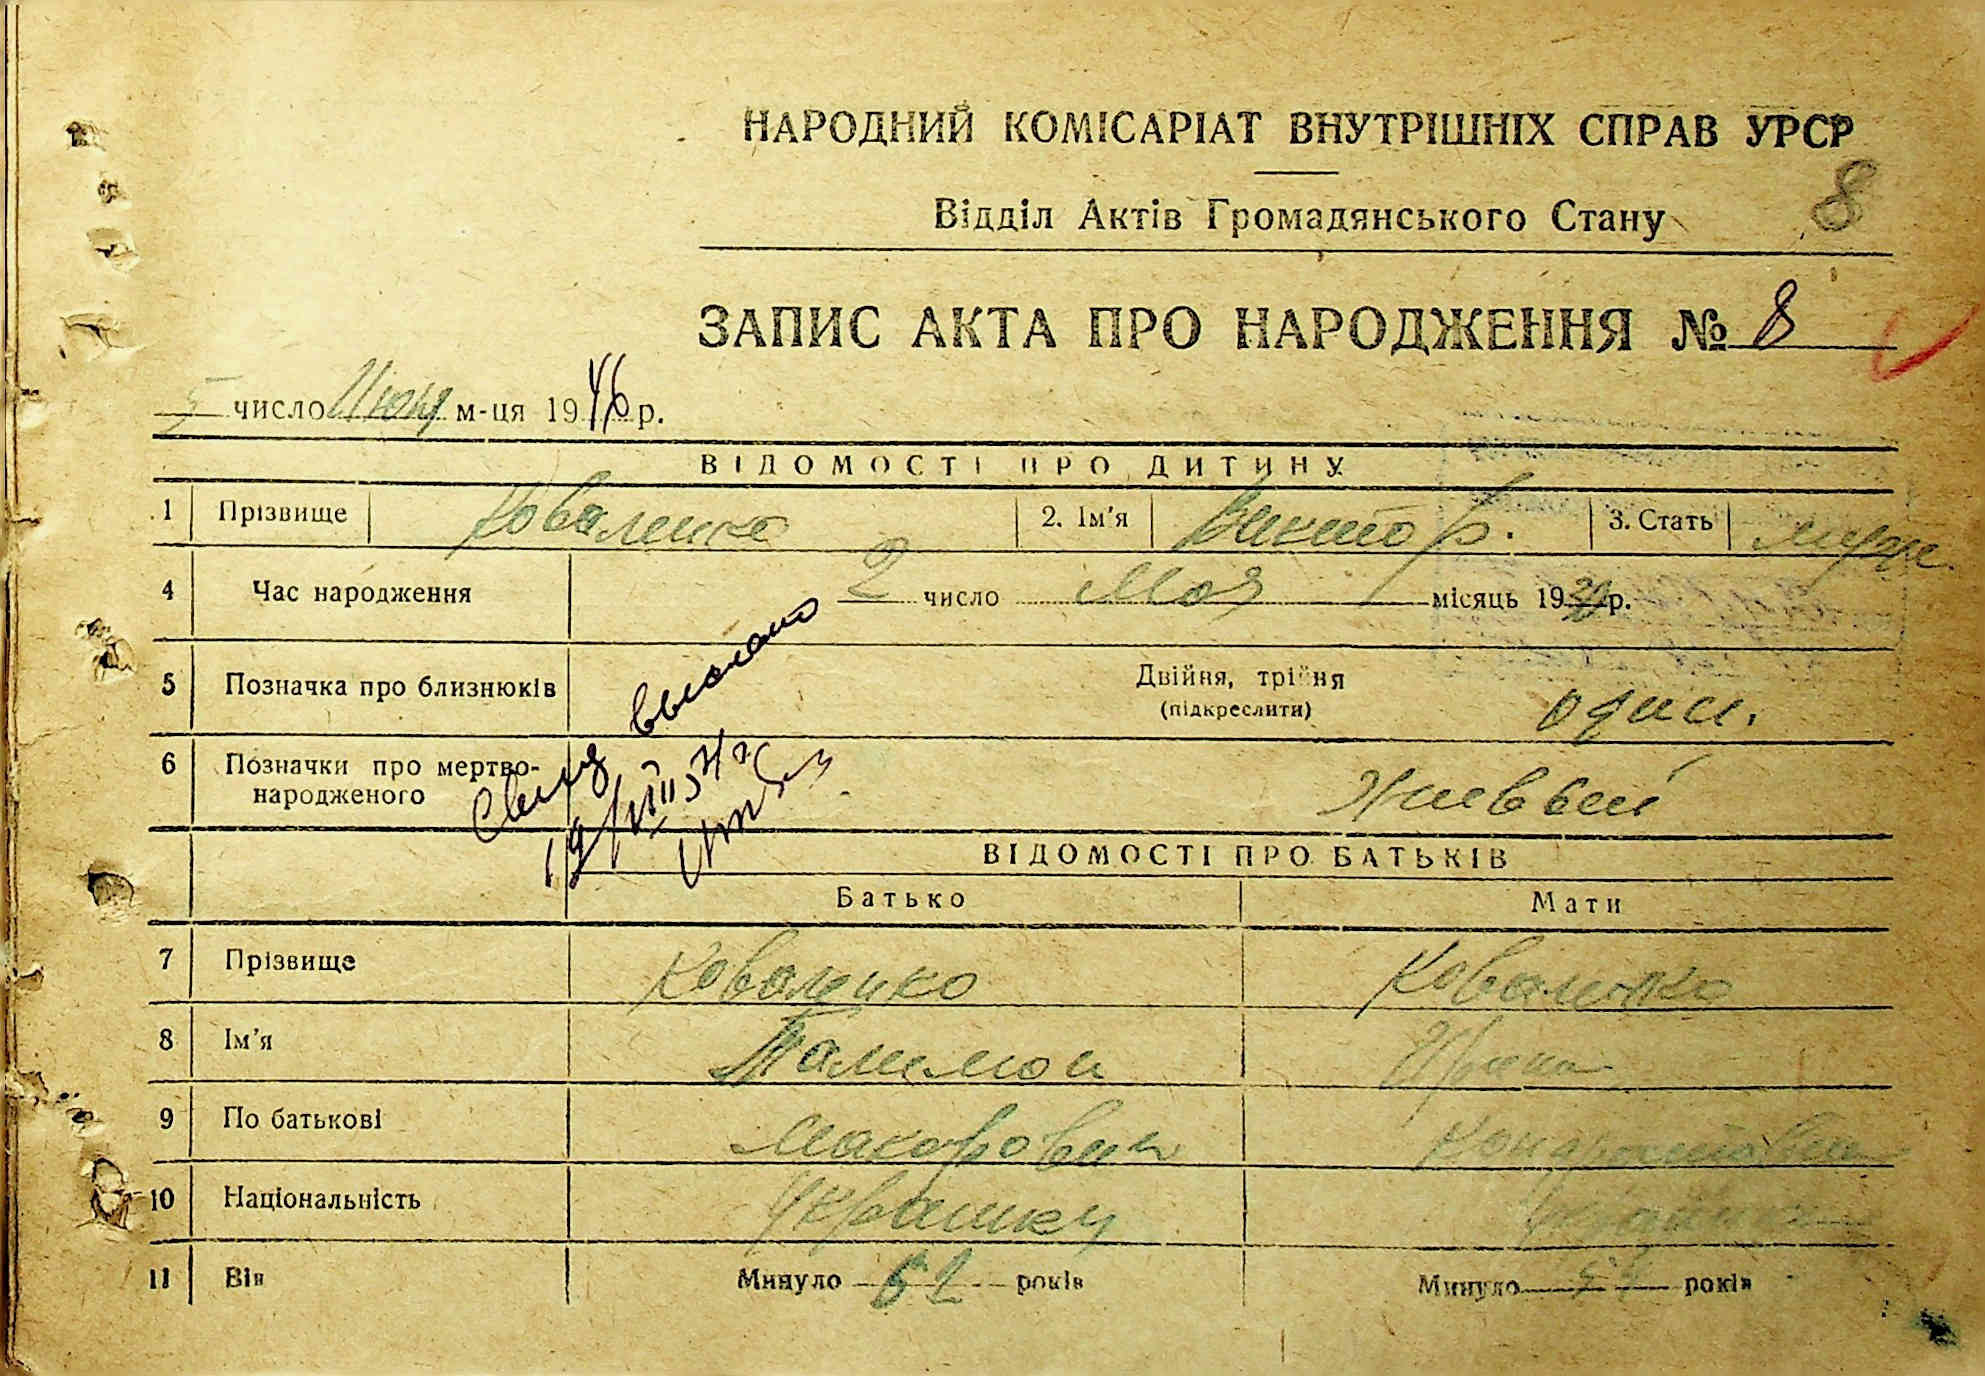 НАРОДНИЙ КОМІСАРІАТ ВНУТРІШНІХ СПРАВ УРСР
Відділ Актів Громадянського Стану
8
ЗАПИС АКТА ПРО НАРОДЖЕННЯ № 8
5 число Июня м-ця 1946 р.
ВІДОМОСТІ ПРО ДИТИНУ
1 Прізвище Коваленко 2. Ім'я Виктор. 3. Стать муж.
4 Час народження 2 число Мая місяць 19 р.
5 Позначка про близнюків Двійня, трійня (підкреслити) один.
6 Позначки про мертвонародженого Живвый
выслано
ВІДОМОСТІ ПРО БАТЬКІВ
Батько Мати
7 Прізвище Коваленко Коваленко
8 Ім'я Палимон Ирина
9 По батькові Макарович Кондратовна
10 Національність Украинец Украинка
11 Вік Минуло 62 років Минуло років